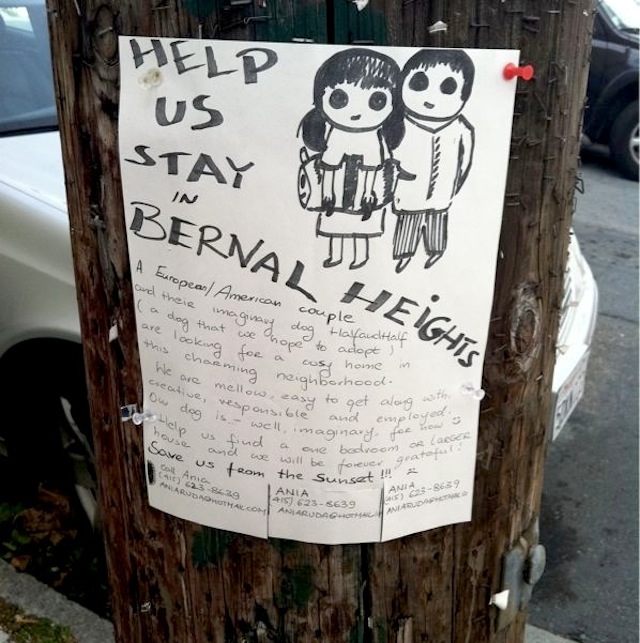 HELP
US
STAY
IN
BERNAL HEIGHTS
A European/American couple
and their imaginary dog HalfandHalf
(a dog that we hope to adopt)
are looking for a cosy home in
this charming neighborhood.
We are mellow, easy to get along with,
creative, responsible and employed.
Our dog is - well, imaginary, for now
Help us find a one bedroom or LARGER
house and we will be forever grateful!
Save us from the Sunset!!!
Call Ania
(415) 623-8639
ANIARUDA@HOTMAIL.COM
ANIA
(415) 623-8639
ANIARUDA@HOTMAIL
ANIA
(415) 623-8639
ANIARUDA@HOTMAIL